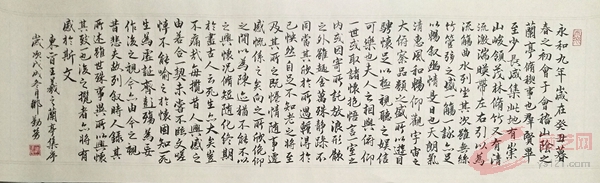 永和九年歲在癸丑暮
春之初會于會稽山陰之
蘭亭脩禊事也群賢畢
至少長咸集此地有崇
山峻領茂林脩竹又有清
流激湍暎帶左右引以為
流觴曲水列坐其次雖無絲
竹管弦之盛一觴一詠亦足
以暢叙幽情是日也天朗氣
清惠風和暢仰觀宇宙之
大俯察品類之盛所以遊目
騁懷足以極視聽之娛信
可樂也夫人之相與俯仰
一世或取諸懷抱悟言一室之
內或因寄所託放浪形骸
之外雖趣舍萬殊靜躁不
同當其欣於所遇輒得於
己怏然自足不知老之將至
及其所之既惓情隨事遷
感慨係之矣向之所欣俛仰
之間以為陳迹猶不能不以
之興懷況脩短隨化終期
於盡古人云死生亦大矣豈
不痛哉每攬昔人興感之
由若合一契未嘗不臨文嗟
悼不能喻之於懷固知一死
生為虛誕齊彭殤為妄
作後之視今亦由今之視
昔悲夫故列叙時人錄其
所述雖世殊事異所以興懷
其致一也後之攬者亦將有
感於斯文
東晉王羲之蘭亭集序
歲次戊戌冬月